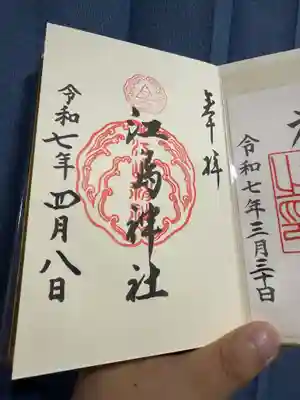 奉拝
江島神社
令和七年四月八日
令和七年三月三十日